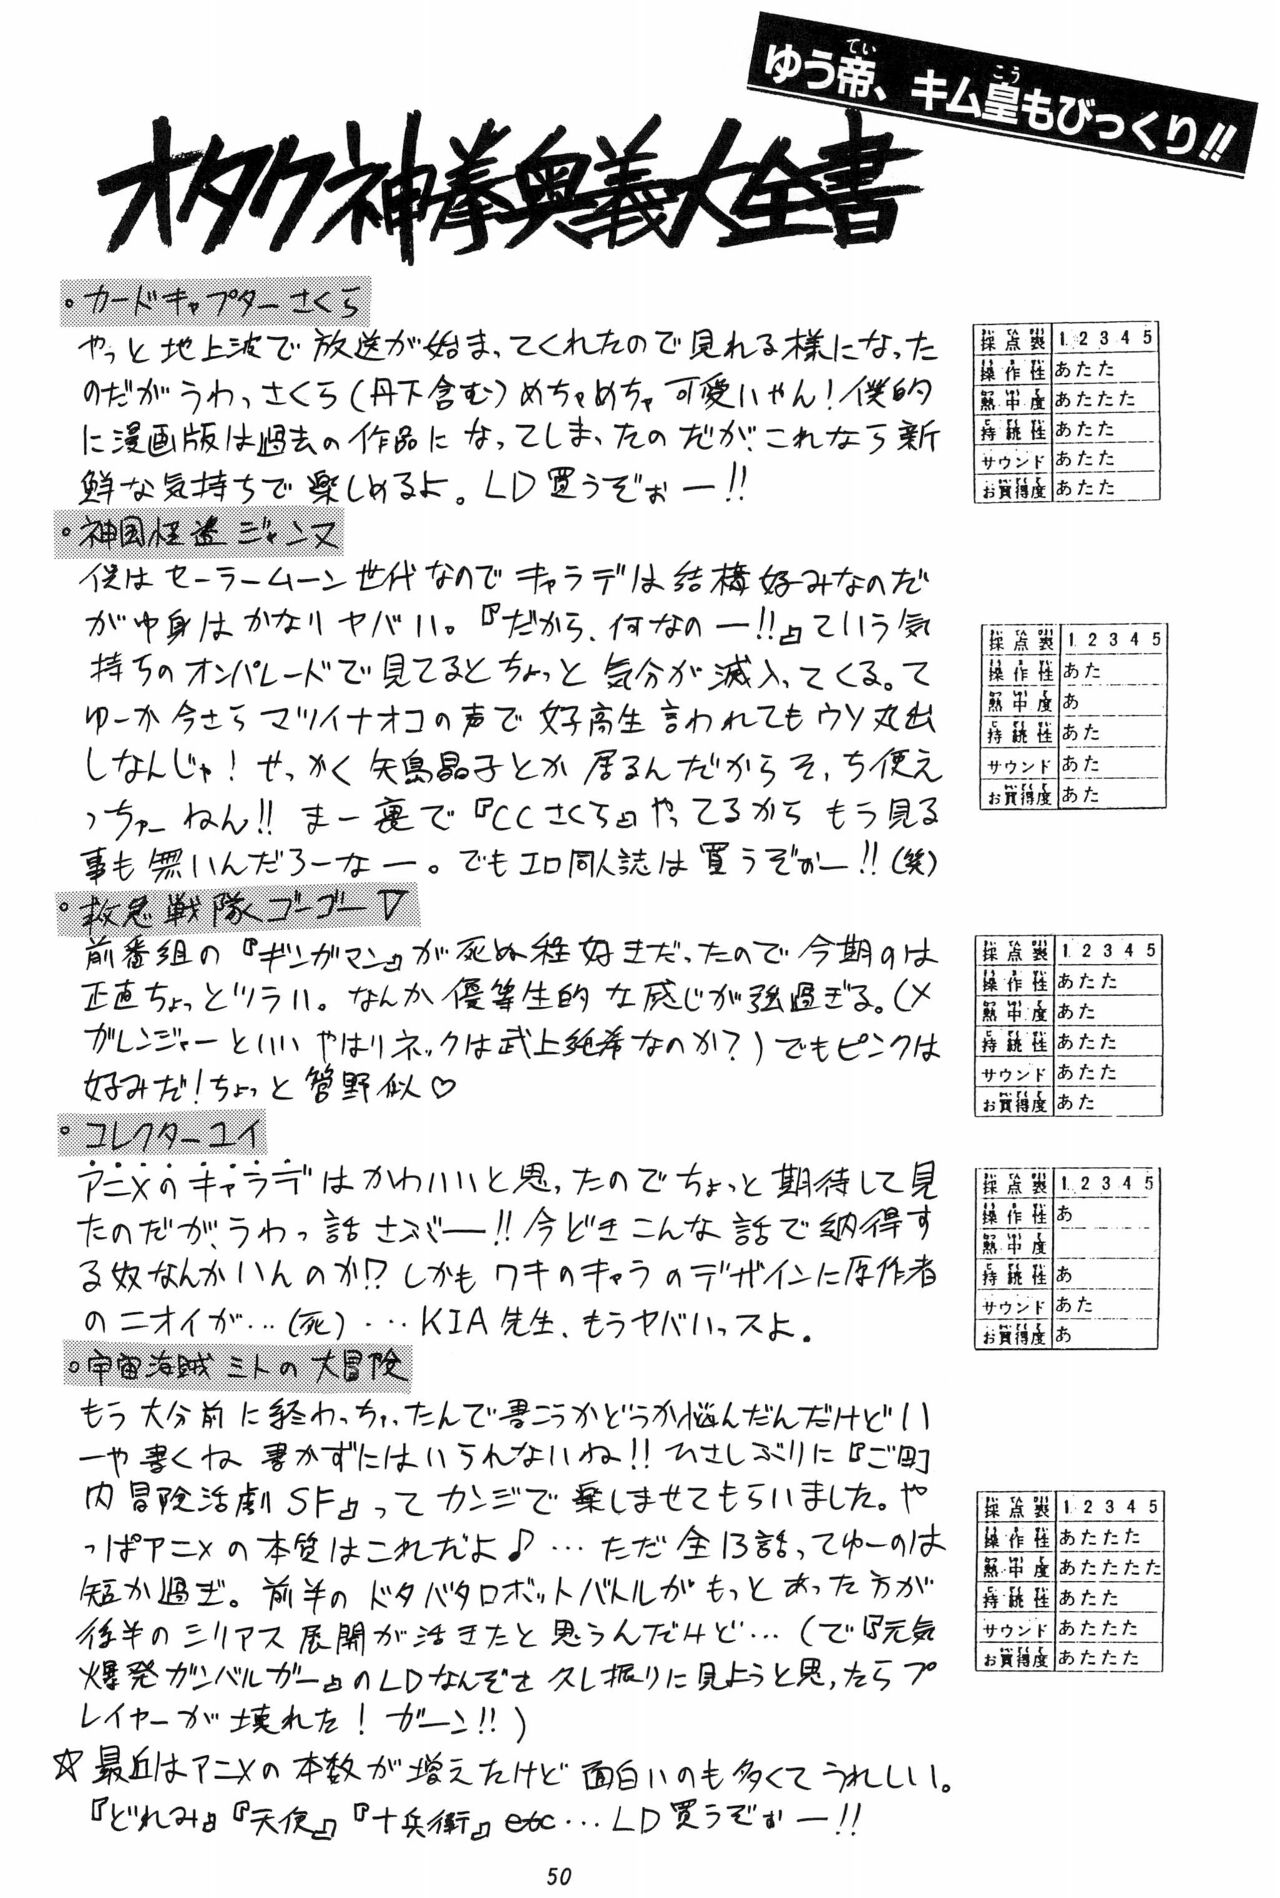 ゆう帝、キム皇もびっくり!!
てい
こう
オタク神拳奥義大全書
。カードキャプターさくら
やっと地上波で放送が始まってくれたので見れる様になった
のだがうわっさくら(丹下含む)めちゃめちゃ可愛いやん!僕的
に漫画版は過去の作品になってしまったのだが、これなら新
鮮な気持ちで楽しめるよ。LD買うぞぉー!!
採点表 1 2 3 4 5
操作性 あたた
熱中度 あたたた
持続性 あたた
サウンド あたた
お買得度 あたた
。神風怪盗ジャンヌ
僕はセーラームーン世代なのでキャラデは結構好みなのだ
が中身はかなりヤバい。『だから、何なのー!!』ていう気
持ちのオンパレードで見てるとちょっと気分が滅入ってくる。て
ゆーか今さらマツイナオコの声で女子高生言われてもウソ丸出
しなんじゃ!せっかく矢島晶子とか居るんだからそっち使え
っちゃーねん!!まー裏で『CCさくら』やってるからもう見る
事も無いんだろーなー。でもエロ同人誌は買うぞぉー!!(笑)
採点表 1 2 3 4 5
操作性 あた
熱中度 あ
持続性 あた
サウンド あた
お買得度 あた
。救急戦隊ゴーゴーV
前番組の『ギンガマン』が死ぬ程好きだったので今期のは
正直ちょっとツラい。なんか優等生的な感じが強過ぎる。(メ
ガレンジャーといいやはりネックは武上純希なのか?)でもピンクは
好みだ!ちょっと菅野似♡
採点表 1 2 3 4 5
操作性 あたた
熱中度 あた
持続性 あたた
サウンド あたた
お買得度 あた
。コレクターユイ
アニメのキャラデはかわいいと思ったのでちょっと期待して見
たのだが、うわっ話さぶー!!今どきこんな話で納得す
る奴なんかいんのか!?しかもワキのキャラのデザインに原作者
のニオイが…(死)…KIA先生、もうヤバいっスよ。
採点表 1 2 3 4 5
操作性 あ
熱中度
持続性 あ
サウンド あた
お買得度 あ
。宇宙海賊ミトの大冒険
もう大分前に終わっちゃったんで書こうかどうか悩んだんだけどい
ーや書くね 書かずにはいられないね!!ひさしぶりに『ご町
内冒険活劇SF』ってカンジで楽しませてもらいました。や
っぱアニメの本質はこれだよ♪…ただ全13話ってゆーのは
短か過ぎ。前半のドタバタロボットバトルがもっとあった方が
後半のシリアス展開が活きたと思うんだけど…(で『元気
爆発ガンバルガー』のLDなんぞさ久し振りに見ようと思ったらプ
レイヤーが壊れた!ガーン!!)
採点表 1 2 3 4 5
操作性 あたたた
熱中度 あたたたた
持続性 あたた
サウンド あたたた
お買得度 あたたた
☆最近はアニメの本数が増えたけど面白いのも多くてうれしい。
『どれみ』『天使』『十兵衛』etc…LD買うぞぉー!!
50